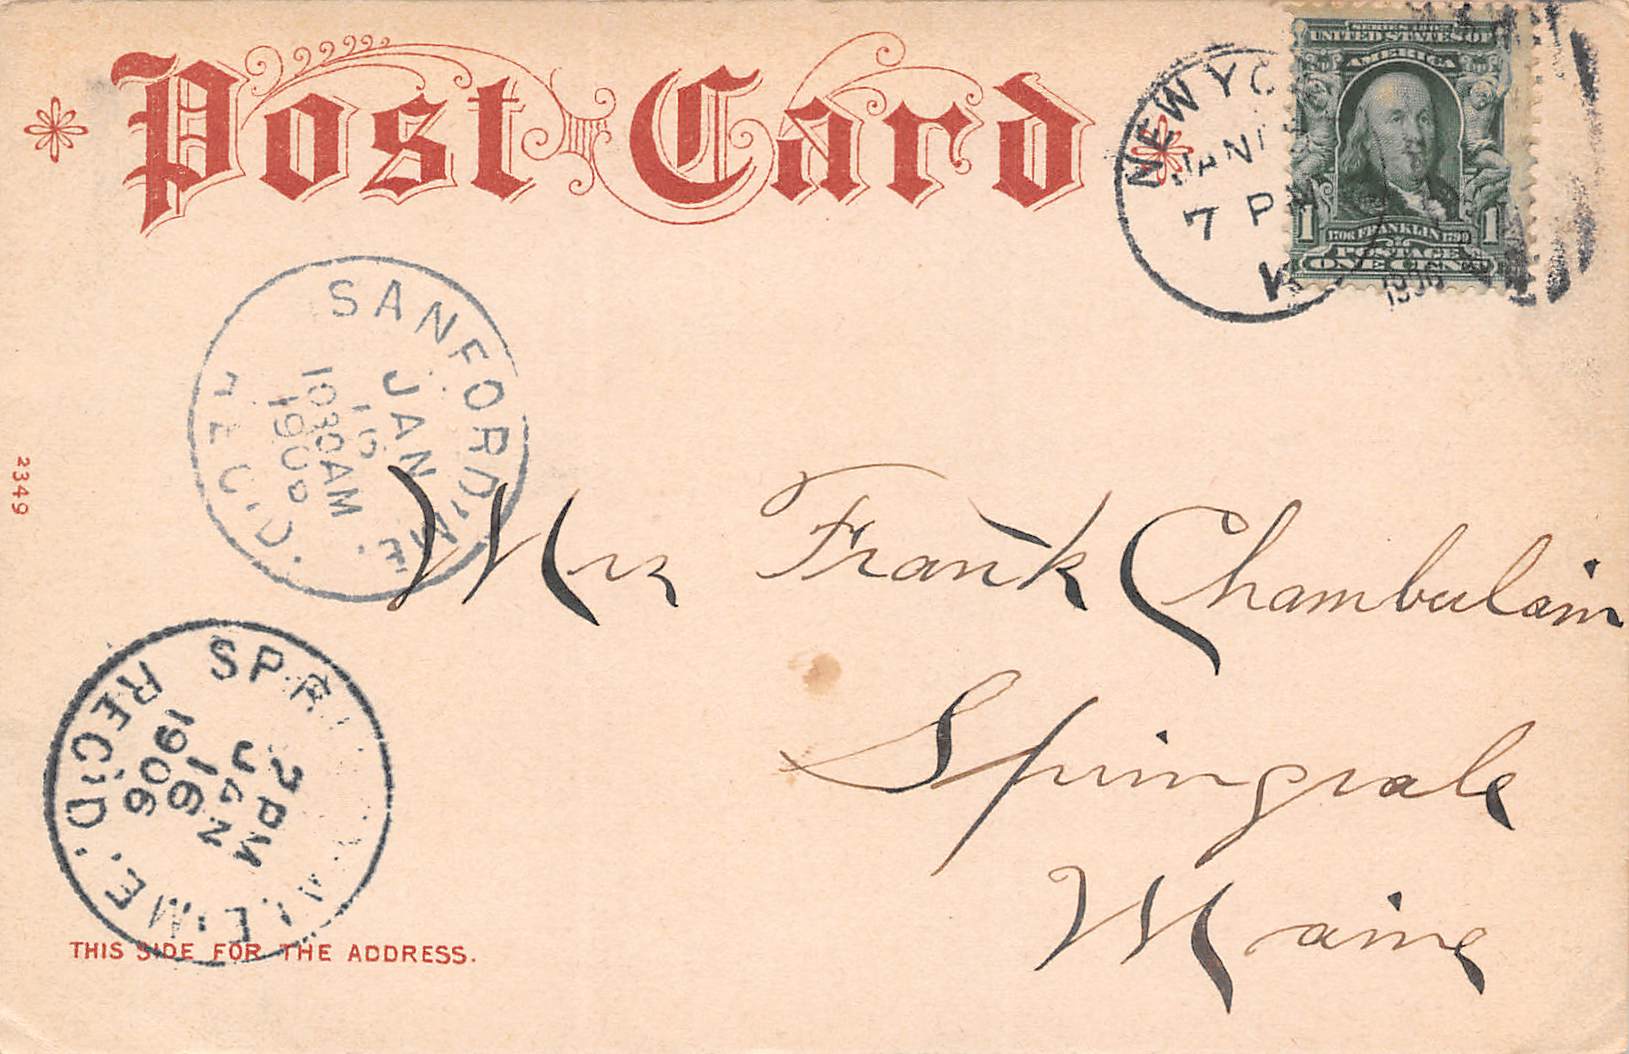 Post Card
NEW YO
JAN
7 PM
K
SERIES
UNITED STATES OF
AMERICA
1706 FRANKLIN 1790
1 1
POSTAGE
ONE CENT
1906
SANFORD, ME.
JAN
16
1030AM
1906
REC'D.
2349
Mrs Frank Chamberlain
Springvale
Maine
SPRI ALE, ME.
2 PM
JAN
16
1906
REC'D.
THIS SIDE FOR THE ADDRESS.